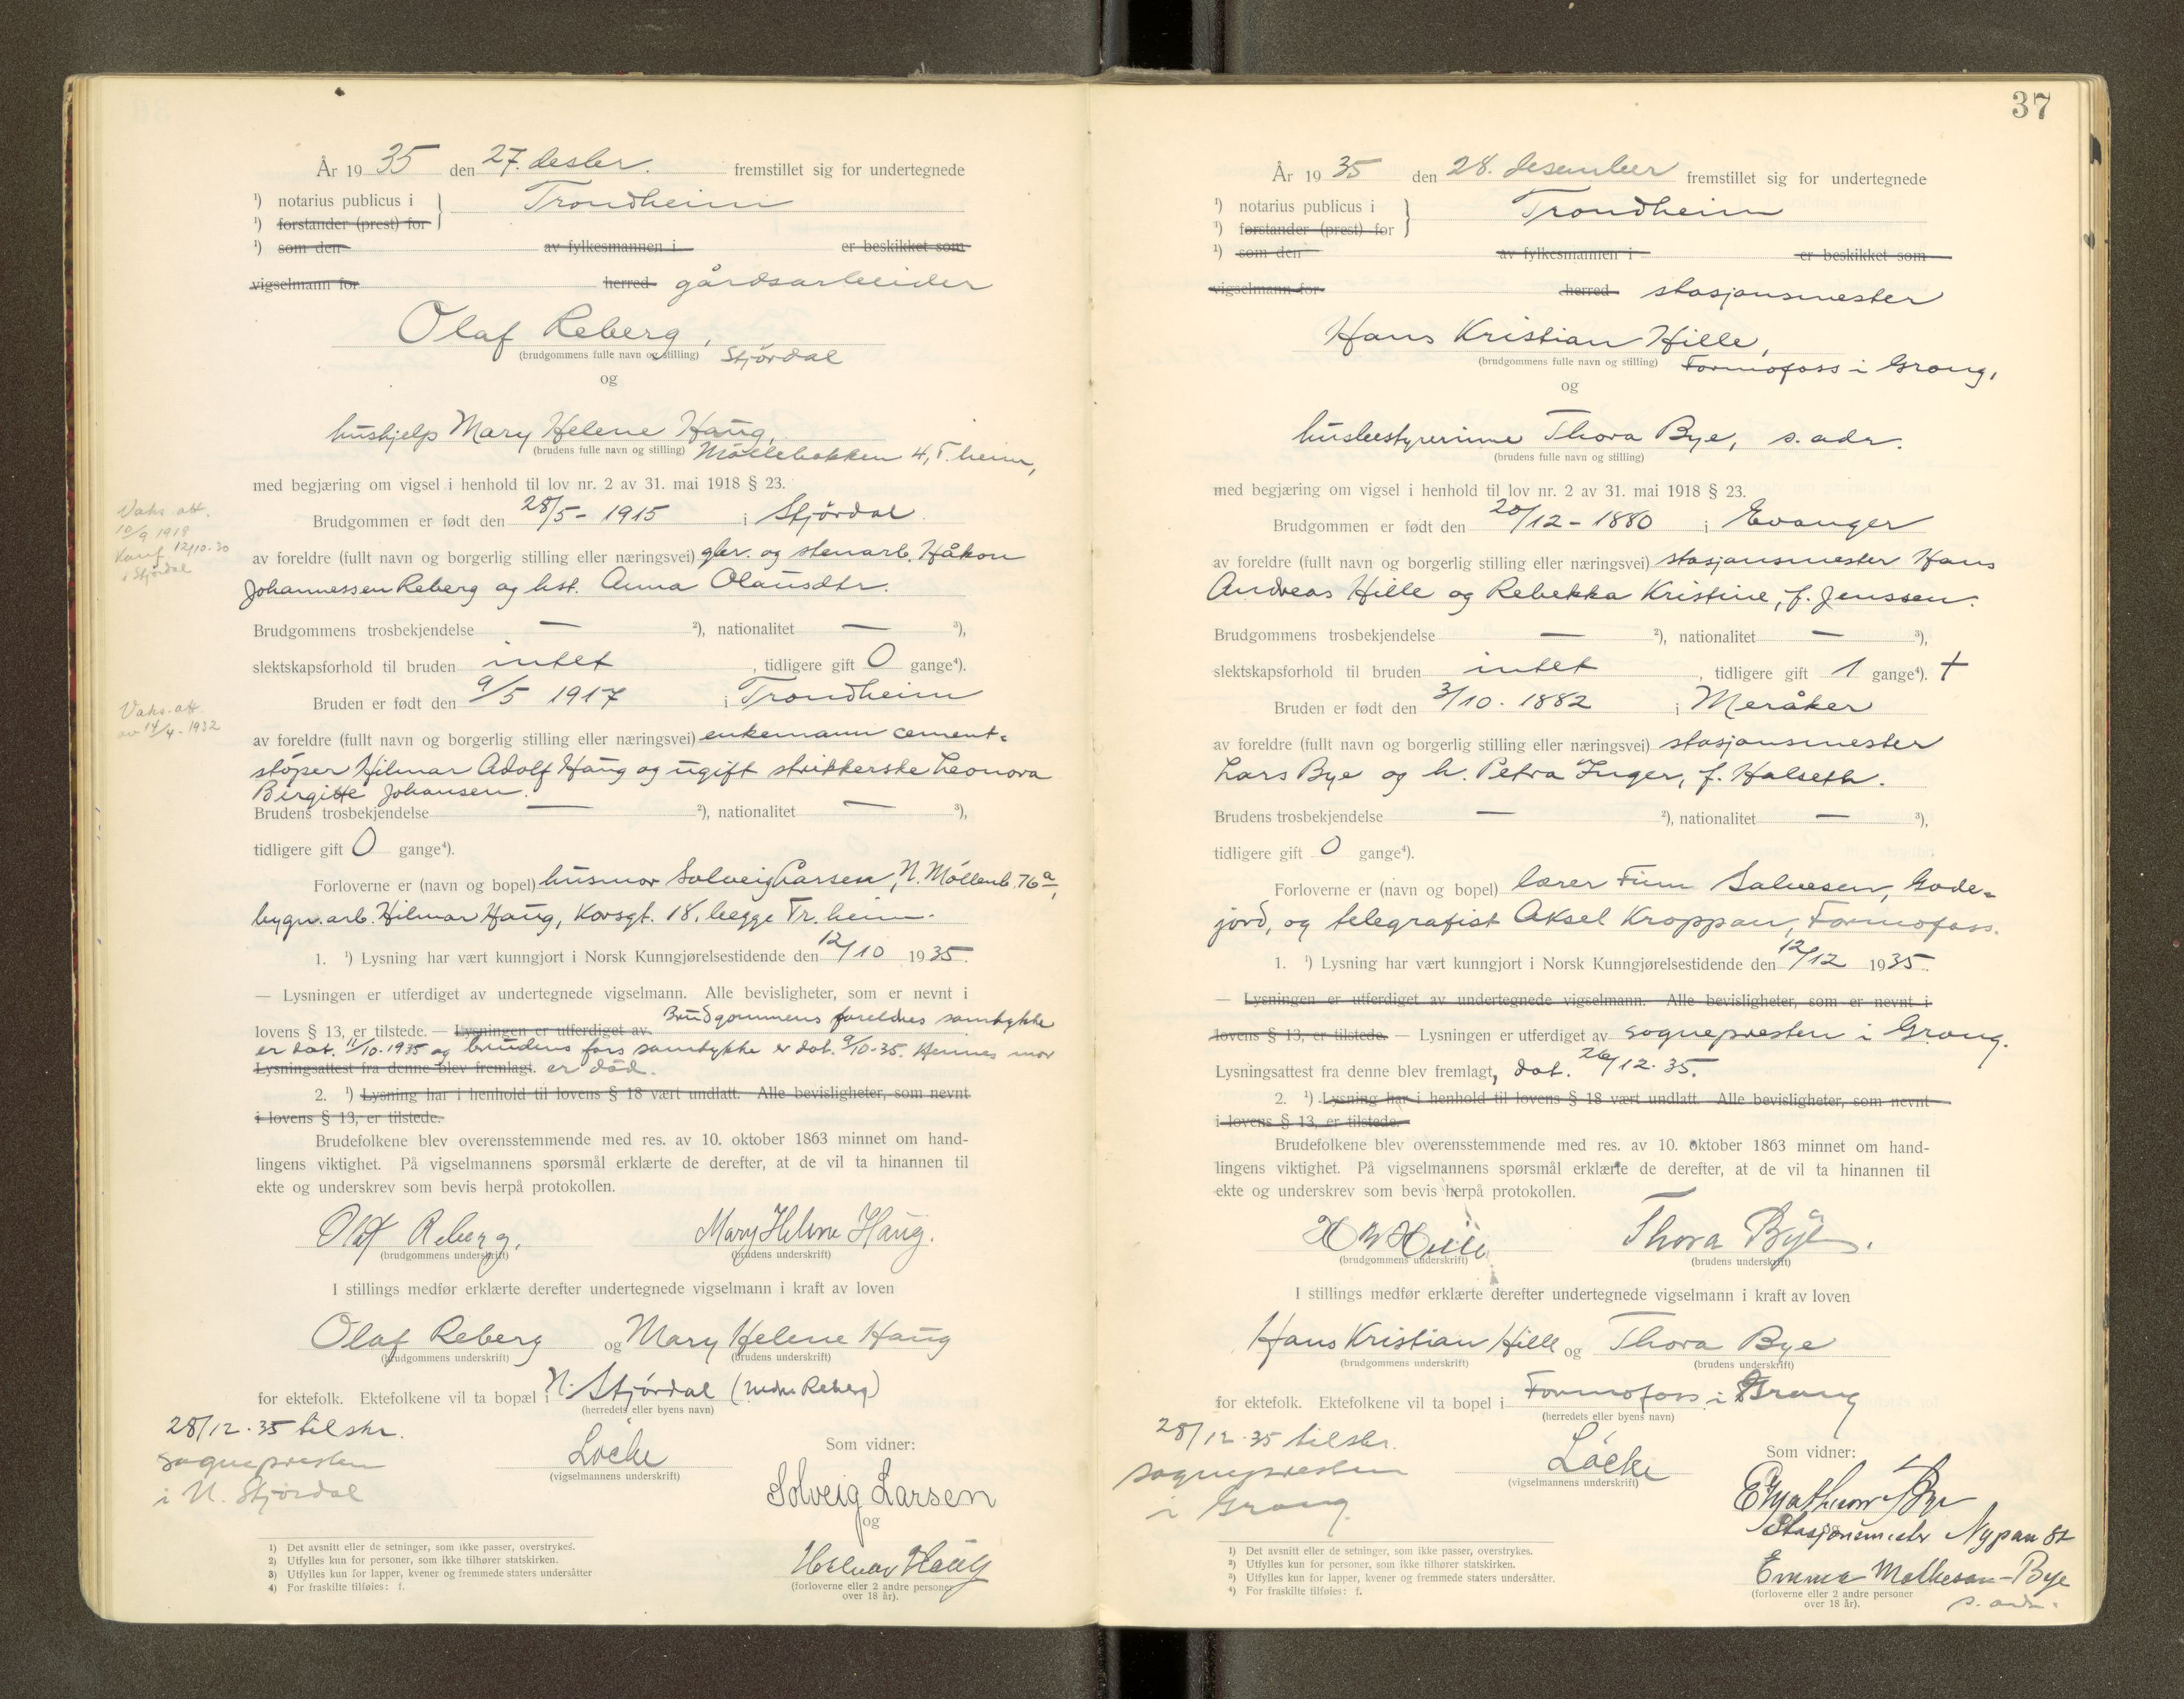 År 19 35 den 27. desbr. fremstillet sig for undertegnede
¹) notarius publicus i } Trondheim
¹) forstander (prest) for
¹) som den av fylkesmannen i er beskikket som
vigselmann for herred gårdsarbeider
Olaf Reberg,
(brudgommens fulle navn og stilling) Stjördal
og
hushjelp Mary Helene Haug,
(brudens fulle navn og stilling) Möllebakken 4, T.heim,
med begjæring om vigsel i henhold til lov nr. 2 av 31. mai 1918 § 23.
Vaks. att.
10/9 1918
Konf. 12/10-30
i Stjördal
Brudgommen er født den 28/5 - 1915 i Stjördal
av foreldre (fullt navn og borgerlig stilling eller næringsvei) gbr. og stenarb. Håkon
Johannessen Reberg og hst. Anna Olausdtr.
Brudgommens trosbekjendelse — ²), nationalitet — ³),
slektskapsforhold til bruden intet, tidligere gift 0 gange⁴).
Vaks. att.
av 14/4-1932
Bruden er født den 9/5 1917 i Trondheim
av foreldre (fullt navn og borgerlig stilling eller næringsvei) enkemann cement-
stöper Hilmar Adolf Haug og ugift strikkerske Leonora
Birgitte Johansen.
Brudens trosbekjendelse — ²), nationalitet — ³),
tidligere gift 0 gange⁴).
Forloverne er (navn og bopel) husmor Solveig Larsen, N. Möllenb. 76a,
bygn.arb. Hilmar Haug, Korsgt. 18, begge Tr.heim.
1. ¹) Lysning har vært kunngjort i Norsk Kunngjørelsestidende den 12/10 1935.
— Lysningen er utferdiget av undertegnede vigselmann. Alle bevisligheter, som er nevnt i
lovens § 13, er tilstede. — Lysningen er utferdiget av Brudgommens foreldres samtykke
er dat. 11/10-1935 og brudens fars samtykke er dat. 9/10-35. Hennes mor
Lysningsattest fra denne blev fremlagt. er död.
2. ¹) Lysning har i henhold til lovens § 18 vært undlatt. Alle bevisligheter, som nevnt
i lovens § 13, er tilstede.
Brudefolkene blev overensstemmende med res. av 10. oktober 1863 minnet om hand-
lingens viktighet. På vigselmannens spørsmål erklærte de derefter, at de vil ta hinannen til
ekte og underskrev som bevis herpå protokollen.
Olaf Reberg. Mary Helene Haug.
(brudgommens underskrift) (brudens underskrift)
I stillings medfør erklærte derefter undertegnede vigselmann i kraft av loven
Olaf Reberg og Mary Helene Haug
(brudgommens underskrift) (brudens underskrift)
for ektefolk. Ektefolkene vil ta bopæl i N. Stjördal (nedre Reberg)
(herredets eller byens navn)
28/12-35 tilskr.
sognepresten
i N. Stjördal
Löcke
(vigselmannens underskrift)
Som vidner:
Solveig Larsen
og
Hilmar Haug
(forloverne eller 2 andre personer
over 18 år).
1) Det avsnitt eller de setninger, som ikke passer, overstrykes.
2) Utfylles kun for personer, som ikke tilhører statskirken.
3) Utfylles kun for lapper, kvener og fremmede staters undersåtter
4) For fraskilte tilføies: f.
37
År 19 35 den 28. desember fremstillet sig for undertegnede
¹) notarius publicus i } Trondheim
¹) forstander (prest) for
¹) som den av fylkesmannen i er beskikket som
vigselmann for herred stasjonsmester
Hans Kristian Hille,
(brudgommens fulle navn og stilling) Formofoss i Grong,
og
husbestyrerinne Thora Bye, s. adr.
(brudens fulle navn og stilling)
med begjæring om vigsel i henhold til lov nr. 2 av 31. mai 1918 § 23.
Brudgommen er født den 20/12 - 1880 i Evanger
av foreldre (fullt navn og borgerlig stilling eller næringsvei) stasjonsmester Hans
Andreas Hille og Rebekka Kristine, f. Jenssen.
Brudgommens trosbekjendelse — ²), nationalitet — ³),
slektskapsforhold til bruden intet, tidligere gift 1 gange⁴). +
Bruden er født den 3/10. 1882 i Meråker
av foreldre (fullt navn og borgerlig stilling eller næringsvei) stasjonsmester
Lars Bye og h. Petra Inger, f. Halseth.
Brudens trosbekjendelse — ²), nationalitet — ³),
tidligere gift 0 gange⁴).
Forloverne er (navn og bopel) lærer Finn Salvesen, Gode-
jord, og telegrafist Aksel Kroppan, Formofoss.
1. ¹) Lysning har vært kunngjort i Norsk Kunngjørelsestidende den 12/12 1935.
— Lysningen er utferdiget av undertegnede vigselmann. Alle bevisligheter, som er nevnt i
lovens § 13, er tilstede. — Lysningen er utferdiget av sognepresten i Grong.
Lysningsattest fra denne blev fremlagt, dat. 26/12-35.
2. ¹) Lysning har i henhold til lovens § 18 vært undlatt. Alle bevisligheter, som nevnt
i lovens § 13, er tilstede.
Brudefolkene blev overensstemmende med res. av 10. oktober 1863 minnet om hand-
lingens viktighet. På vigselmannens spørsmål erklærte de derefter, at de vil ta hinannen til
ekte og underskrev som bevis herpå protokollen.
H K Hille Thora Bye.
(brudgommens underskrift) (brudens underskrift)
I stillings medfør erklærte derefter undertegnede vigselmann i kraft av loven
Hans Kristian Hille og Thora Bye
(brudgommens underskrift) (brudens underskrift)
for ektefolk. Ektefolkene vil ta bopel i Formofoss i Grong
(herredets eller byens navn)
28/12-35 tilskr.
sognepresten
i Grong.
Löcke
(vigselmannens underskrift)
Som vidner:
Bye
og
Stasjonsmester Nypan St
Emma Matheson-Bye
(forloverne eller 2 andre personer
over 18 år).
s. adr.
¹) Det avsnitt eller de setninger, som ikke passer, overstrykes.
²) Utfylles kun for personer, som ikke tilhører statskirken.
³) Utfylles kun for lapper, kvener og fremmede staters undersåtter.
⁴) For fraskilte tilføies: f.